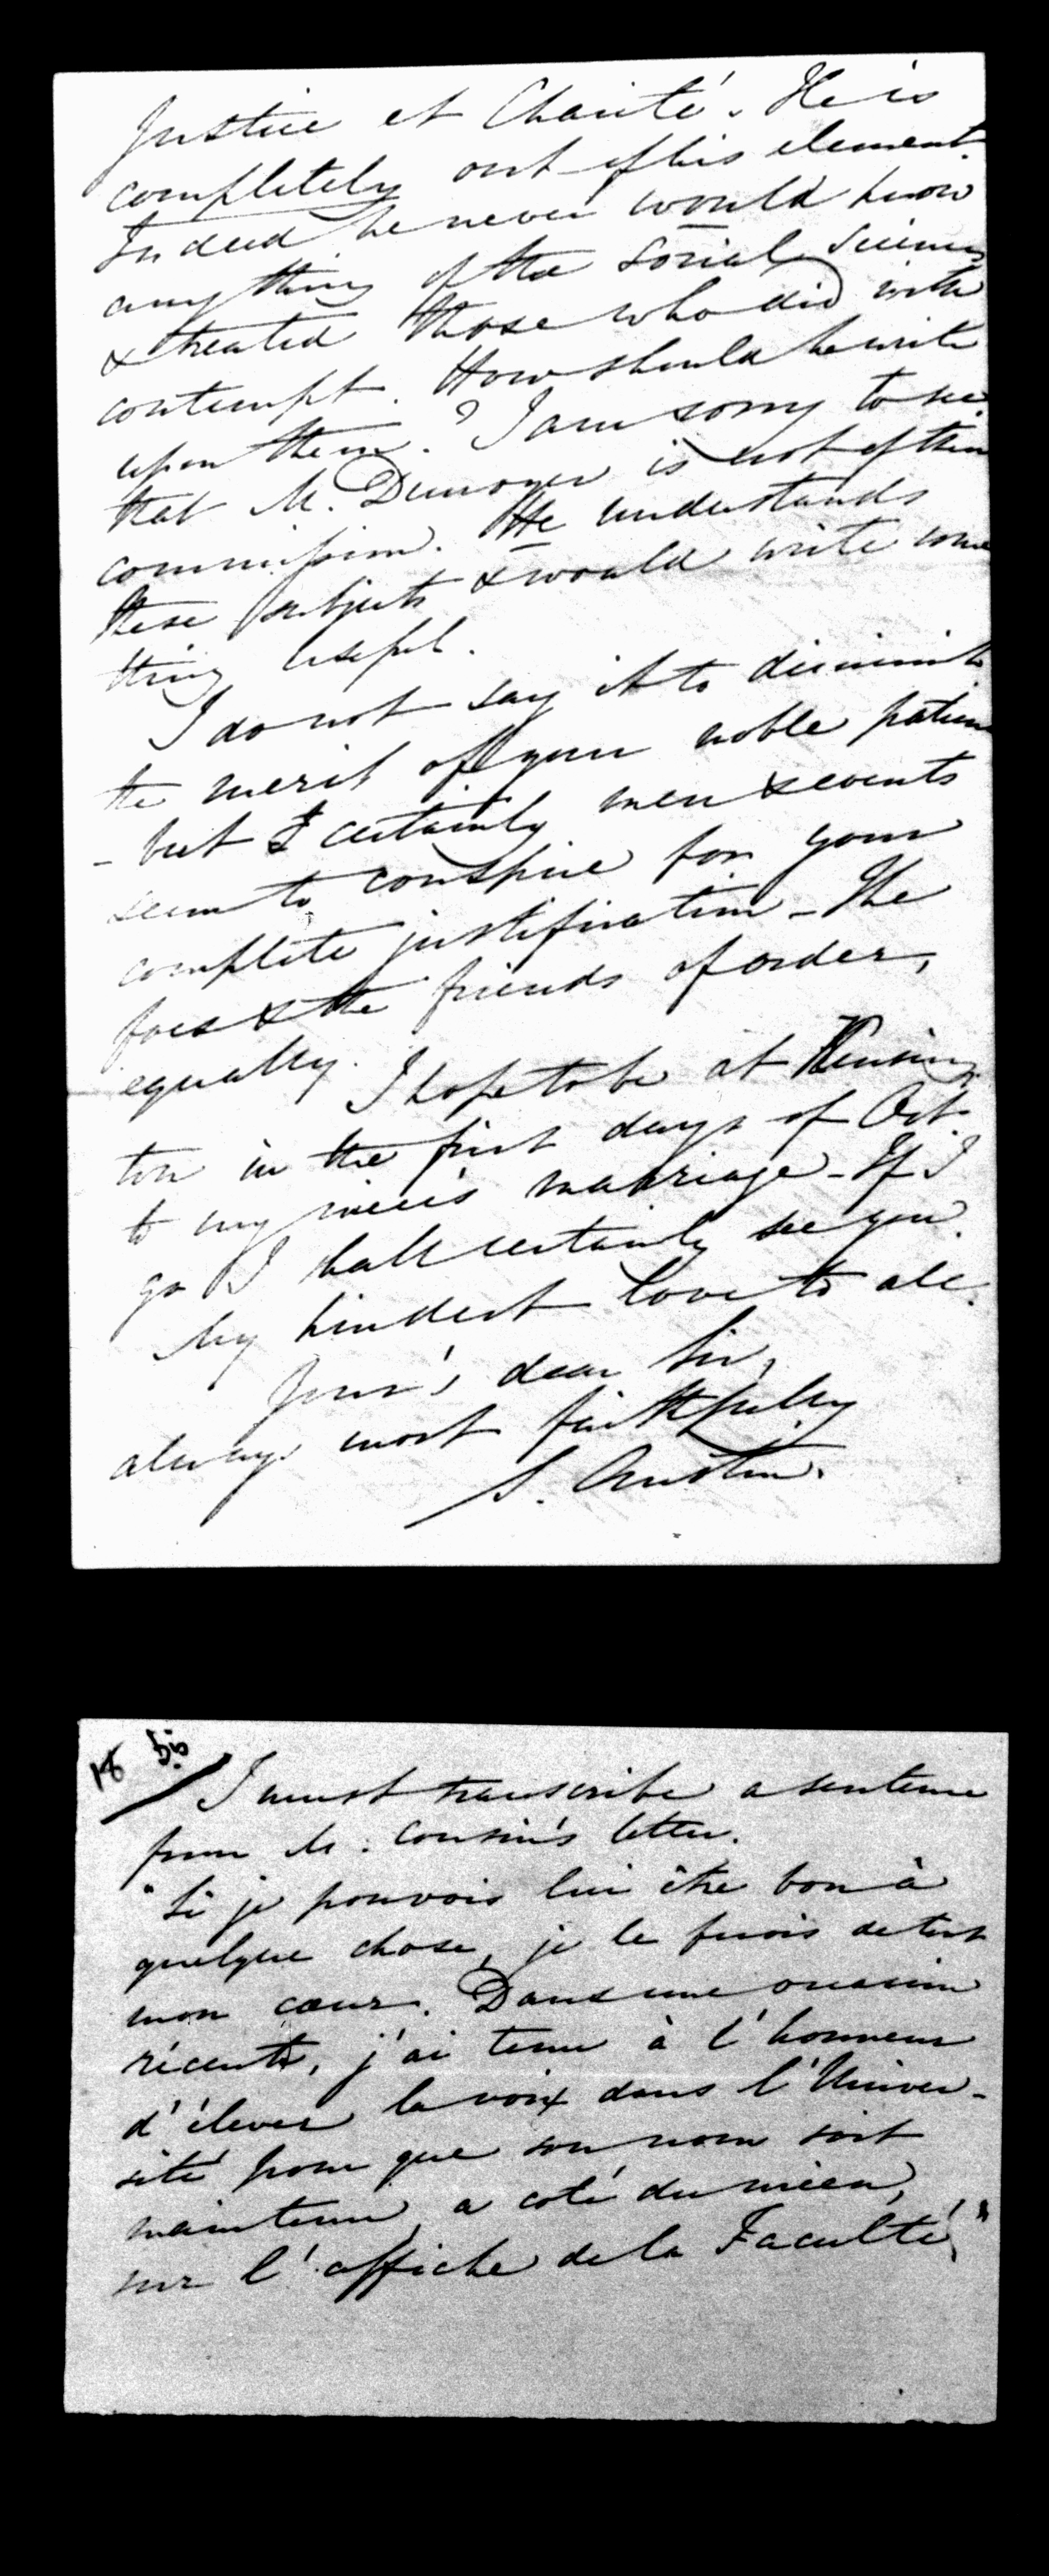 Justice et Charité. He is
completely out of his element.
Indeed he never would know
any thing of the social sciences
& treated those who did with
contempt. How should he write
upon them? I am sorry to see
that M. Dunoyer is not of the
commission. He understands
these subjects & would write some
thing useful.
I do not say it to diminish
the merit of your noble patience
- but certainly men & events
seem to conspire for your
complete justification - The
foes & the friends of order,
equally.
I hope to be at Kensing
ton in the first days of Oct.
to my niece's marriage - If I
go I shall certainly see you.
My kindest love to all.
Your's, dear Sir,
always most faithfully
S. Austin.
18 bis
I must transcribe a sentence
from M. Cousin's letter.
"Si je pouvois lui être bon à
quelque chose, je le ferois de tout
mon cœur. Dans une occasion
récente, j'ai tenu à l'honneur
d'élever la voix dans l'Univer-
sité pour que son nom soit
maintenu, a coté du mien,
sur l'affiche de la Faculté."